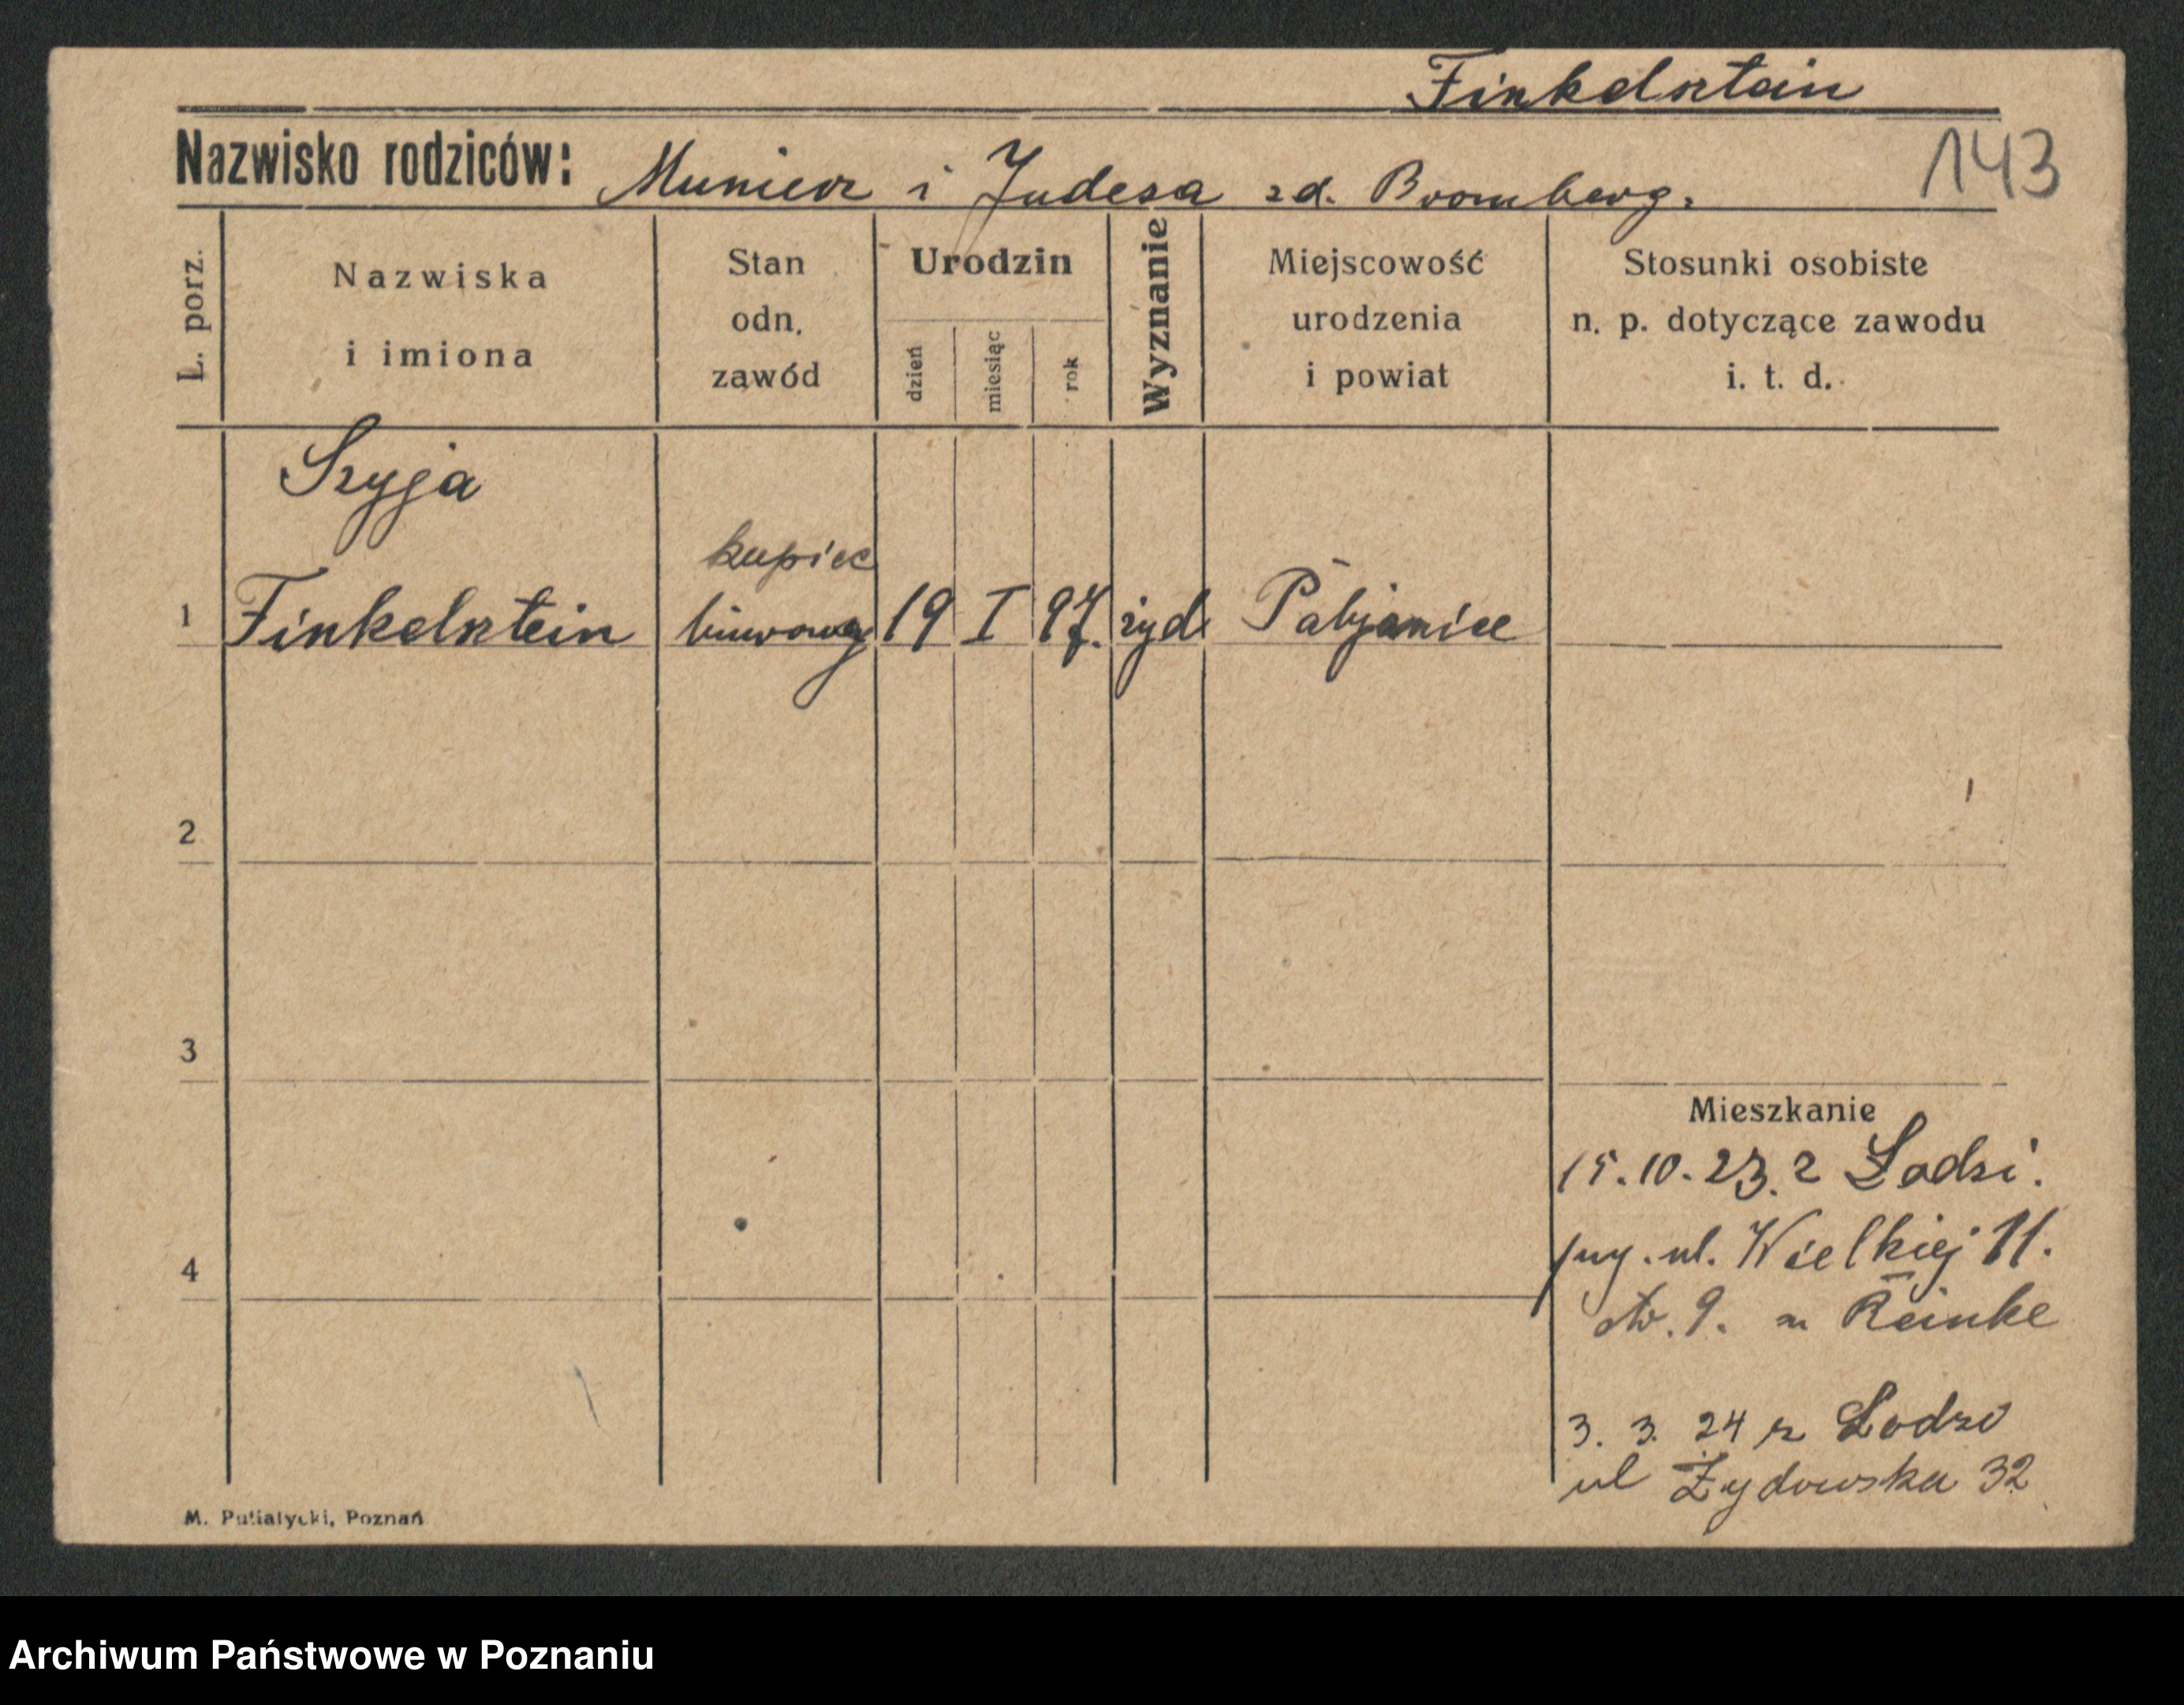 Finkelsztein
143
Nazwisko rodziców: Muniesz i Judesa zd. Bromberg.
L. porz.
Nazwiska
i imiona
Stan
odn.
zawód
Urodzin
dzień
miesiąc
rok
Wyznanie
Miejscowość
urodzenia
i powiat
Stosunki osobiste
n. p. dotyczące zawodu
i. t. d.
Szyja
kupiec
1 Finkelsztein biurowy 19 I 97. żyd Pabjanice
2
3
Mieszkanie
15.10.23. z Lodzi.
ul. Wielkiej 11.
4
9. Reinke
3. 3. 24 z Lodzi
ul Żydowska 32
M. Putiatycki, Poznań
Archiwum Państwowe w Poznaniu